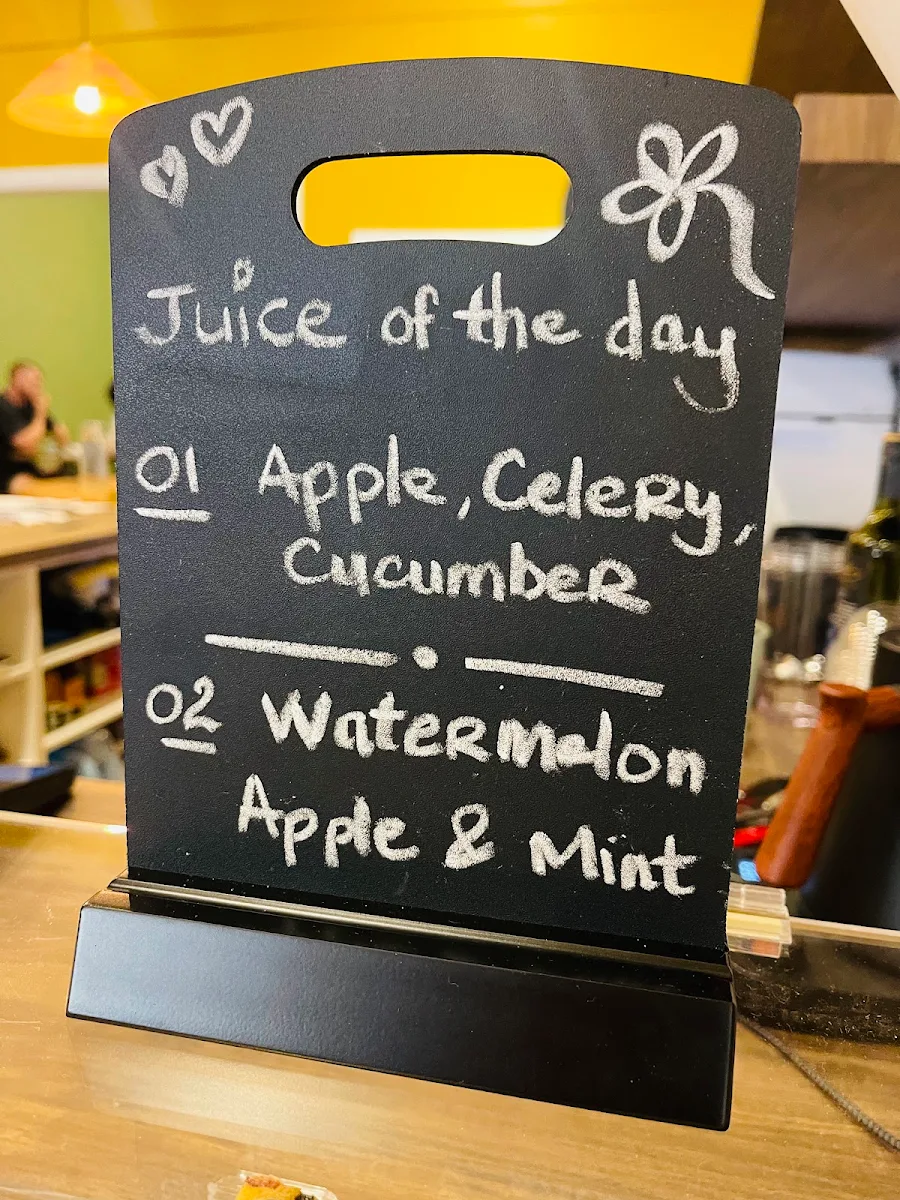 Juice of the day
01 Apple, Celery,
Cucumber
02 Watermelon
Apple & Mint